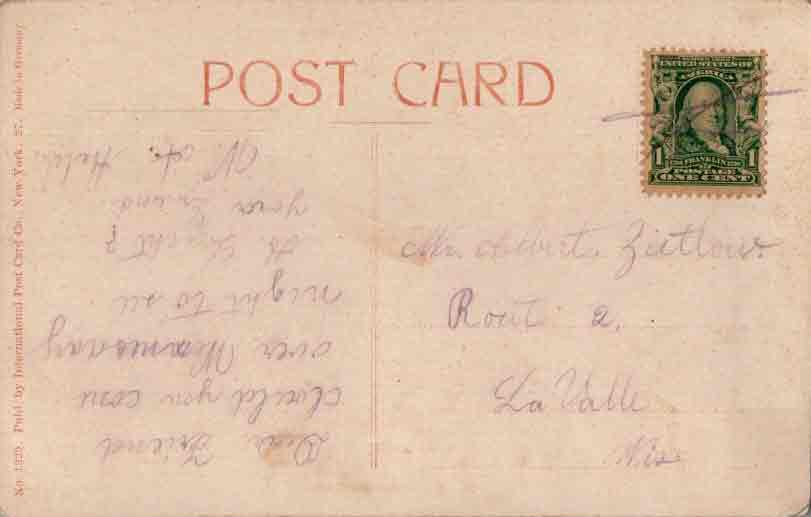 POST CARD
UNITED STATES OF
AMERICA
1 FRANKLIN 1
POSTAGE
ONE CENT
Mr. Albert Zietlow
Rout 2.
La Valle
Wis
Dear Friend
would you com
over
night to see
your friend
No. 1329. Publ. by International Post Card Co., New York. 27. Made in Germany